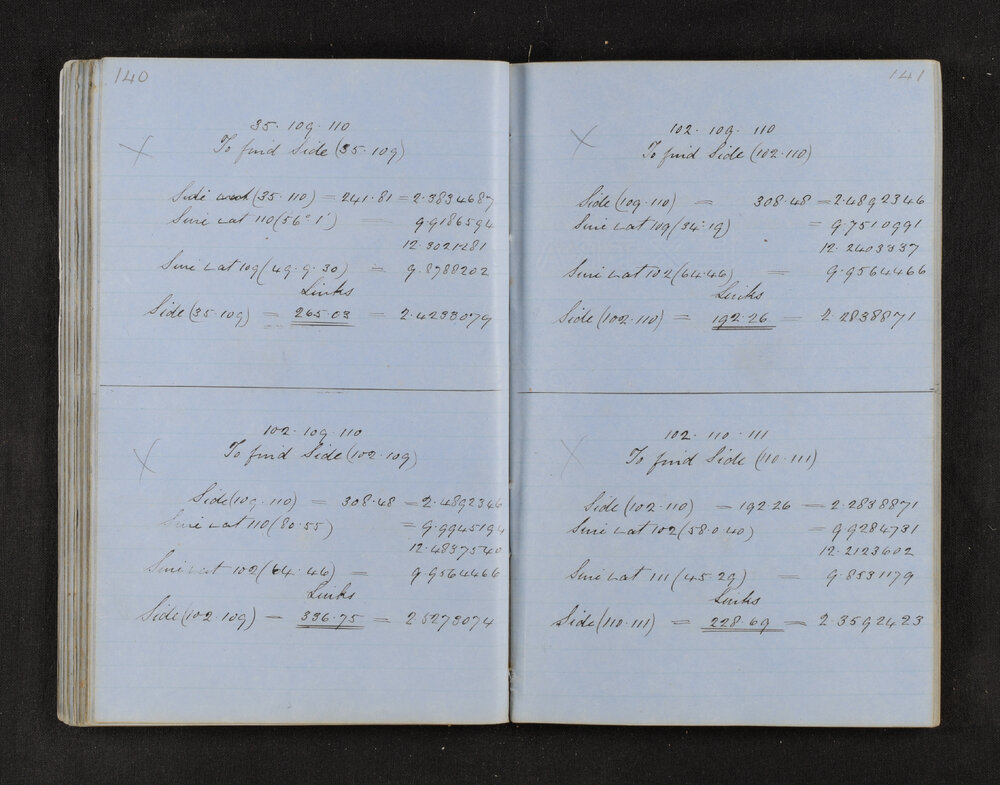 140
35. 109. 110
To find Side (35. 109)
Side (35. 110) = 241.81 = 2.3834687
Sine ∠ at 110 (56° 1′) = 9.9186594
12.3021281
Sine ∠ at 109 (49. 9. 30) = 9.8788202
Links
Side (35. 109) = 265.03 = 2.4233079
102. 109. 110
To find Side (102. 109)
Side (109. 110) = 308.48 = 2.4892346
Sine ∠ at 110 (80.55) = 9.9945194
12.4837540
Sine ∠ at 102 (64.46) = 9.9564466
Links
Side (102. 109) = 336.75 = 2.5273074
141
102. 109. 110
To find Side (102. 110)
Side (109. 110) = 308.48 = 2.4892346
Sine ∠ at 109 (34.19) = 9.7510991
12.2403337
Sine ∠ at 102 (64.46) = 9.9564466
Links
Side (102. 110) = 192.26 = 2.2838871
102. 110. 111
To find Side (110. 111)
Side (102. 110) = 192.26 = 2.2838871
Sine ∠ at 102 (58.0.40) = 9.9284731
12.2123602
Sine ∠ at 111 (45.29) = 9.8531179
Links
Side (110. 111) = 228.69 = 2.3592423